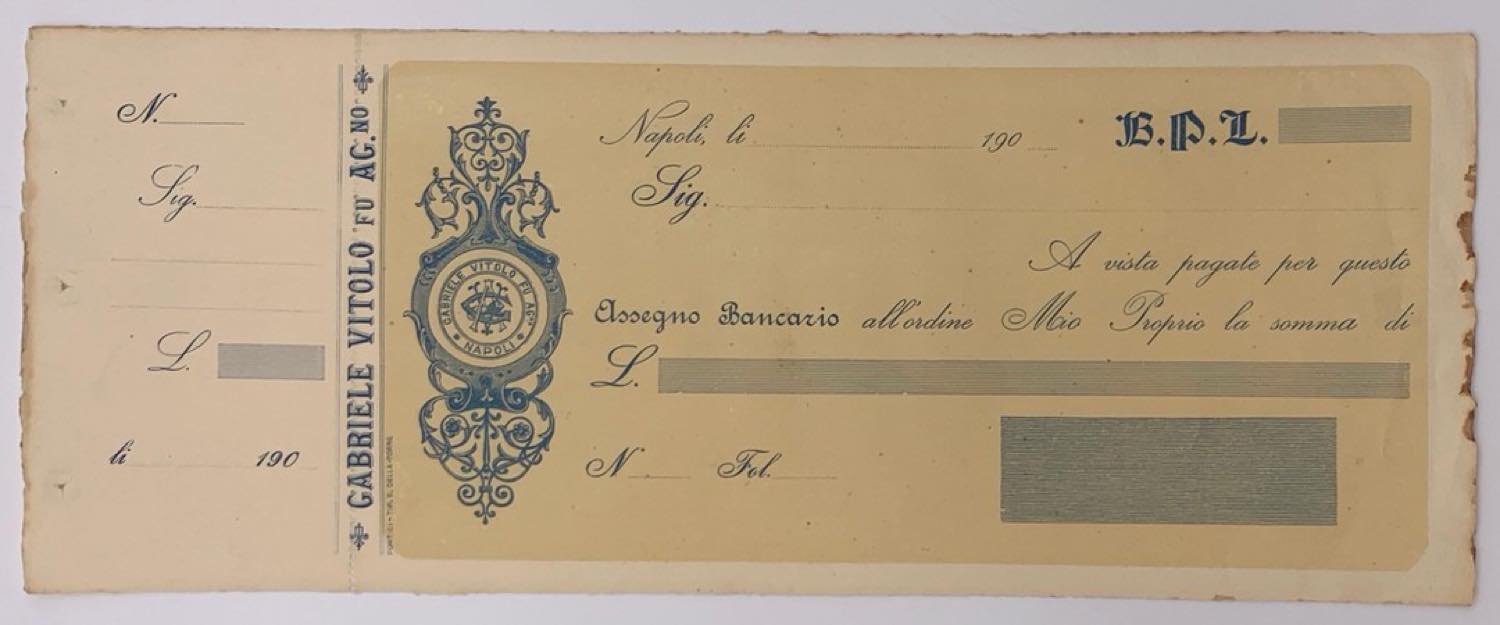 N.
Sig.
L.
li 190
GABRIELE VITOLO FU AG.NO
PORTICI - TIP. E. DELLA-TORRE
GABRIELE VITOLO FU AG.NO
NAPOLI
Napoli, li 190 B.P.L.
Sig.
A vista pagate per questo
Assegno Bancario all'ordine Mio Proprio la somma di
L.
N Fol.